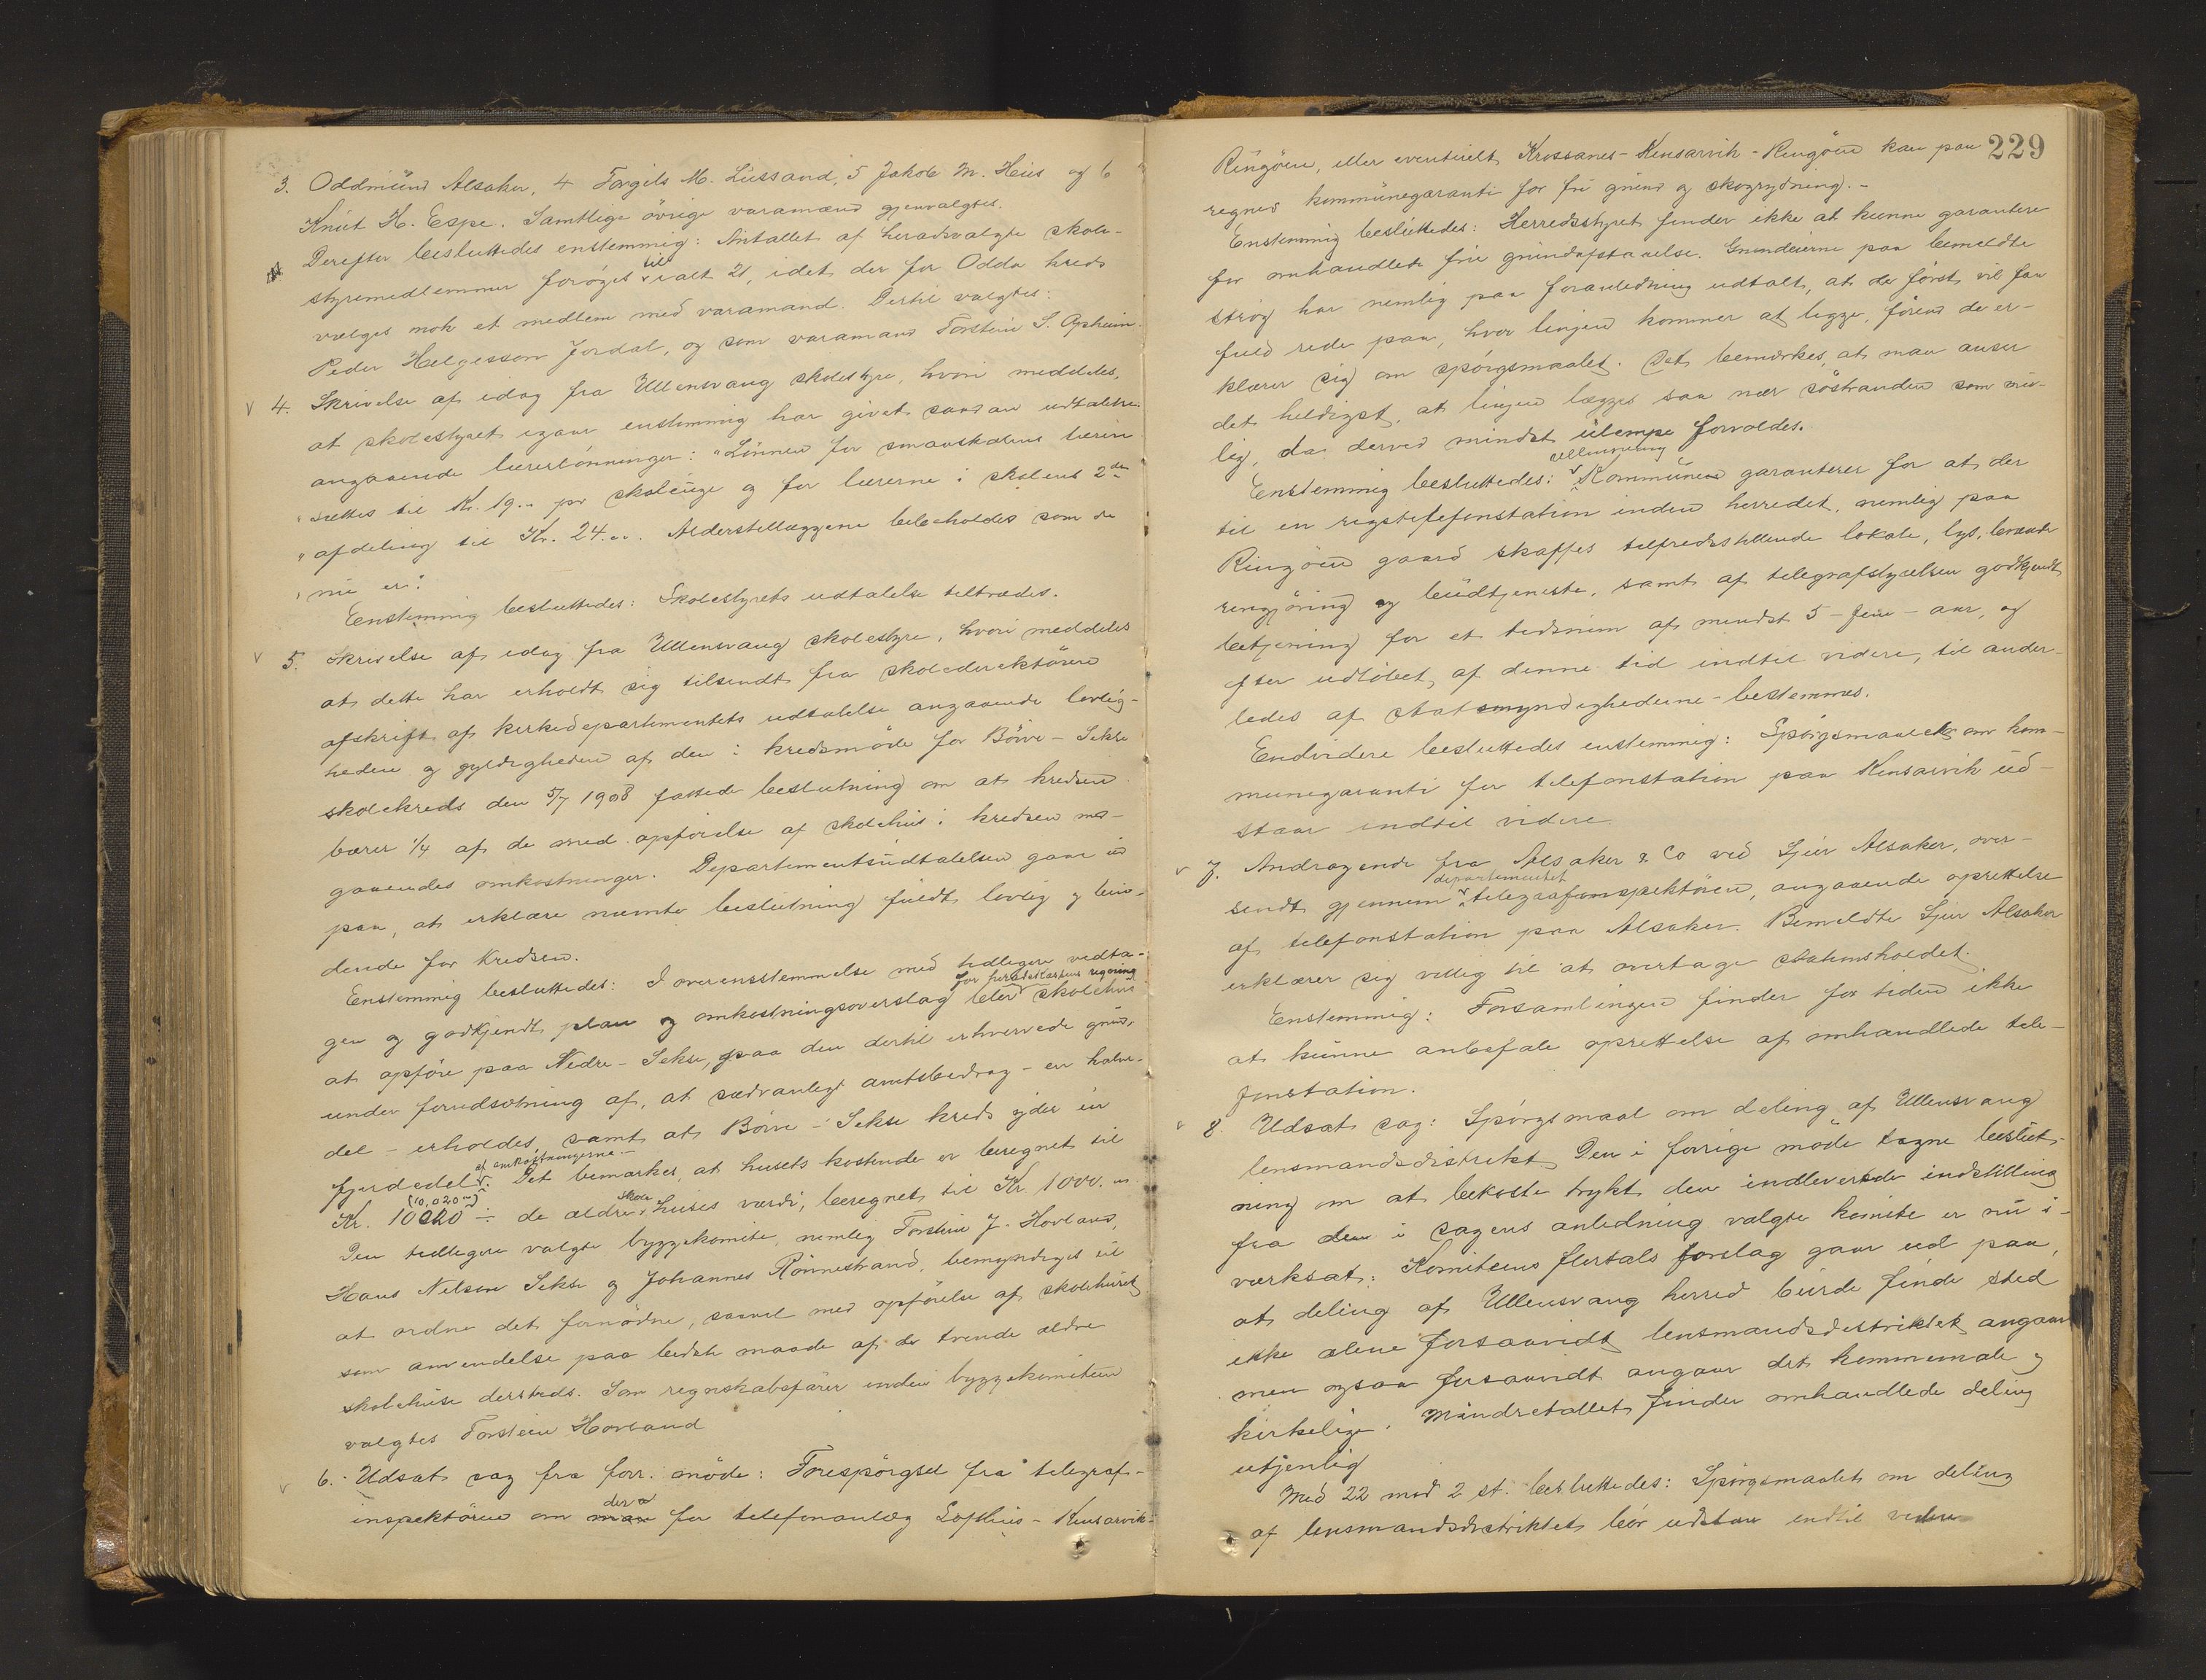 3. Oddmund Alsaker, 4 Torgils M. Lussand, 5 Jakob M. Heus og 6
Knut H. Espe. Samtlige övrige varamænd gjenvalgtes.
Derefter besluttedes enstemmig: Antallet af heradsvalgte skole-
styremedlemmer forøges til ialt 21, idet der for Odda kreds
vælges nok et medlem med varamand. Dertil valgtes:
Peder Helgesson Jordal, og som varamand Torstein S. Apheim.
v 4. Skrivelse af idag fra Ullensvang skolestyre, hvori meddeles,
at skolestyret igaar enstemmig har givet saadan udtalelse
angaaende lærerlönninger: "Lönnen for smaaskolens lærere
"sættes til Kr. 19.00 pr skoleuge og for lærerne i skolens 2den
"afdeling til Kr. 24.00. Alderstillæggene bibeholdes som de
"nu er."
Enstemmig besluttedes: Skolestyrets udtalelse tiltrædes.
v 5. Skrivelse af idag fra Ullensvang skolestyre, hvori meddeles
at dette har erholdt sig tilsendt fra skoledirektören
afskrift af kirkedepartementets udtalelse angaaende lovlig-
heden og gyldigheden af den i kredsmöde for Börve-Sekse
skolekreds den 5/7 1908 fattede beslutning om at kredsen
bærer 1/4 af de med opförelse af skolehus i kredsen med-
gaaendes omkostninger. Departementsudtalelsen gaar ud
paa, at erklære nævnte beslutning fuldt lovlig og bin-
dende for kredsen.
Enstemmig besluttedes: I overensstemmelse med tidligere vedta-
gen og godkjendt plan og omkostningsoverslag blir for heradskassens regning skolehus
at opföre paa Nedre-Sekse, paa den dertil erhvervede grund,
under forudsætning af, at sædvanlegt amtsbidrag - en halv-
del - erholdes, samt at Börve-Sekse kreds yder en
fjerdedel af omkostningerne. - Det bemærkes, at husets kostende er beregnet til
Kr. 10020 (10,020 00) ÷ de ældre skolehuses værdi, beregnet til Kr 1000.00
Den tidligere valgte byggekomite, nemlig Torstein J. Hovland,
Hans Nelson Sekse og Johannes Rönnestrand, bemyndiges til
at ordne det fornödne, saavel med opförelse af skolehuset
som anvendelse paa bedste maade af de tvende ældre
skolehuse dersteds. Som regnskabsförer inden byggekomiteen
valgtes Torstein Hovland
v 6. Udsat sag fra forr. möde: Forespörgsel fra telegraf-
inspektören om man der for telefonanlæg Lofthus-Kinsarvik-
229
Ringöen, eller eventuelt Krossanes-Kinsarvik-Ringöen kan paa
regnes kommunegaranti for fri grund og skogrydning. -
Enstemmig besluttedes: Herredsstyret finder ikke at kunne garantere
for omhandlede frie grundafstaaelse. Grundeierne paa bemeldte
strög har nemlig paa foranledning udtalt, at de först vil faa
fuld rede paa, hvor linjen kommer at ligge, förend de er-
klærer sig om spörgsmaalet. Det bemærkes, at man anser
det heldigst, at linjen lægges saa nær söstranden som mu-
lig, da derved mindst ulempe forvoldes.
Enstemmig besluttedes: Ullensvang Kommunen garanterer for at der
til en rigstelefonstation inden herredet, nemlig paa
Ringöen gaard skaffes tilfredsstillende lokale, lys, brænde
rengjöring og budtjeneste, samt af telegrafstyrelsen godkjendt
betjening for et tidsrum af mindst 5 - fem - aar, og
efter udlöbet af denne tid indtil videre, til ander-
ledes af statsmyndighederne - bestemmes.
Endvidere besluttedes enstemmig: Spörgsmaalet om kom-
munegaranti for telefonstation paa Kinsarvik ud-
staar indtil videre
v 7. Andragende fra Alsaker & Co ved Sjur Alsaker, over-
sendt gjennem departementet telegrafinspektören, angaaende oprettelse
af telefonstation paa Alsaker. Bemeldte Sjur Alsaker
erklærer sig villig til at overtage stationsholdet.
Enstemmig: Forsamlingen finder for tiden ikke
at kunne anbefale oprettelse af omhandlede tele-
fonstation.
v 8. Udsat sag: Spörgsmaal om deling af Ullensvang
lensmandsdistrikt. Den i forrige möde tagne beslut-
ning om at bekoste trykt den indleverede indstilling
fra den i sagens anledning valgte komite er nu i-
værksat: Komiteens flertals forslag gaar ud paa,
at deling af Ullensvang herred burde finde sted
ikke alene forsaavidt lensmandsdistriktet angaar
men ogsaa forsaavidt angaar det kommunale og
kirkelige. Mindretallet finder omhandlede deling
utjenlig
Med 22 mod 2 st. besluttedes: Spörgsmaalet om deling
af lensmandsdistriktet bör udstaa indtil videre